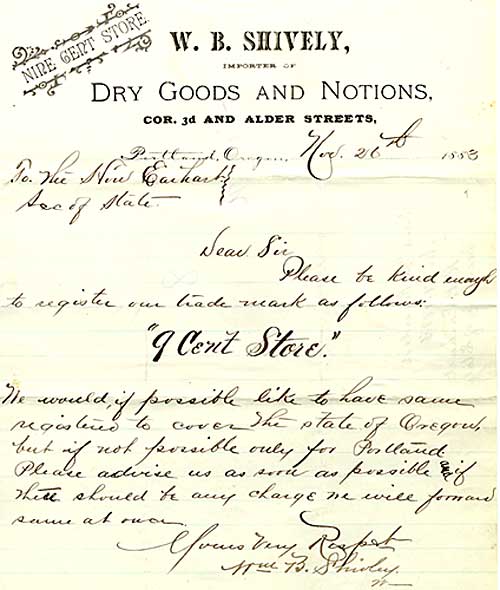 NINE CENT STORE
W. B. SHIVELY,
IMPORTER OF
DRY GOODS AND NOTIONS,
COR. 3d AND ALDER STREETS,
Portland, Oregon, Nov. 26th 1883
To The Hon Earhart
Sec of State
Dear Sir
Please be kind enough
to register our trade mark as follows:
"9 Cent Store."
We would, if possible like to have same
registered to cover the state of Oregon,
but if not possible only for Portland
Please advise us as soon as possible and if
there should be any charge we will forward
same at once
Yours Very Respct
Wm B. Shively